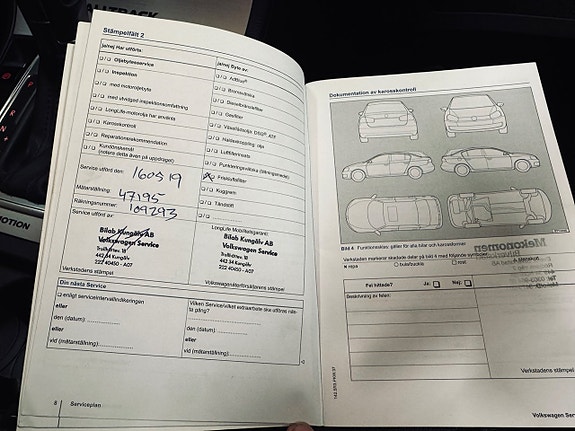 ALLTRACK
Stämpelfält 2
ja/nej Har utförts:
Oljebytesservice
Inspektion
med motoroljebyte
med utvidgad inspektionsomfattning
LongLife-motorolja har använts
Karosskontroll
Reparationsrekommendation
Kundönskemål
(notera detta även på uppdraget)
Service utförd den: 160519
Mätarställning: 47195
Räkningsnummer: 109293
Service utförd av:
Bilab Kungälv AB
Volkswagen Service
442 34 Kungälv
222 40450 - A07
Verkstadens stämpel
ja/nej Byte av:
AdBlue®
Bromsvätska
Dieselbränslefilter
Gasfilter
Växellådsolja DSG®, ATF
Haldexkoppling olja
Luftfilterinsats
Punkteringsvätska (tätningsmedel)
Friskluftsfilter
Kuggrem
Tändstift
LongLife Mobilitetsgaranti:
Bilab Kungälv AB
Volkswagen Service
442 34 Kungälv
222 40450 - A07
Volkswagenåterförsäljarens stämpel
Din nästa Service
enligt serviceintervallindikeringen
eller
den (datum):
eller
vid (mätarställning):
Vilken Service/vilket extraarbete ska utföras näs-
ta gång?
den (datum):
eller
vid (mätarställning):
8 Serviceplan
Dokumentation av karosskontroll
Bild 4 Funktionsskiss: gäller för alla bilar och karossformer.
Verkstaden markerar skadade delar på bild 4 med följande symboler:
X repa O bula/buckla □ rost
Fel hittade? Ja: Nej:
Beskrivning av felen:
Mekonomen
Verkstadens stämpel
Volkswagen Ser
MOTION